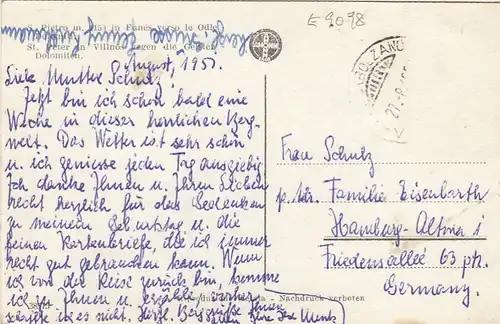 E 9098
S. Pietro m. 1151 in Funes verso le Odle
St. Peter in Villnöss gegen die Geisler
Dolomiten.
August, 1951.
Liebe Mutter Schulz!
Jetzt bin ich schon bald eine
Woche in dieser herrlichen Berg-
welt. Das Wetter ist sehr schön
u. ich geniesse jeden Tag ausgiebig
Ich danke Ihnen u. Ihren Lieben
recht herzlich für das Gedenken
zu meinem Geburtstag u. die
feinen Kartenbriefe, die ich immer
recht gut gebrauchen kann. Wenn
ich von der Reise zurück bin, komme
ich zu Ihnen u. erzähle
schreibe ich es nicht. Herzl.
BOLZANO
Frau Schulz
p. Adr. Familie Eisenbarth
Hamburg-Altona 1
Friedensallee 63 ptr.
Germany.
Nachdruck verboten